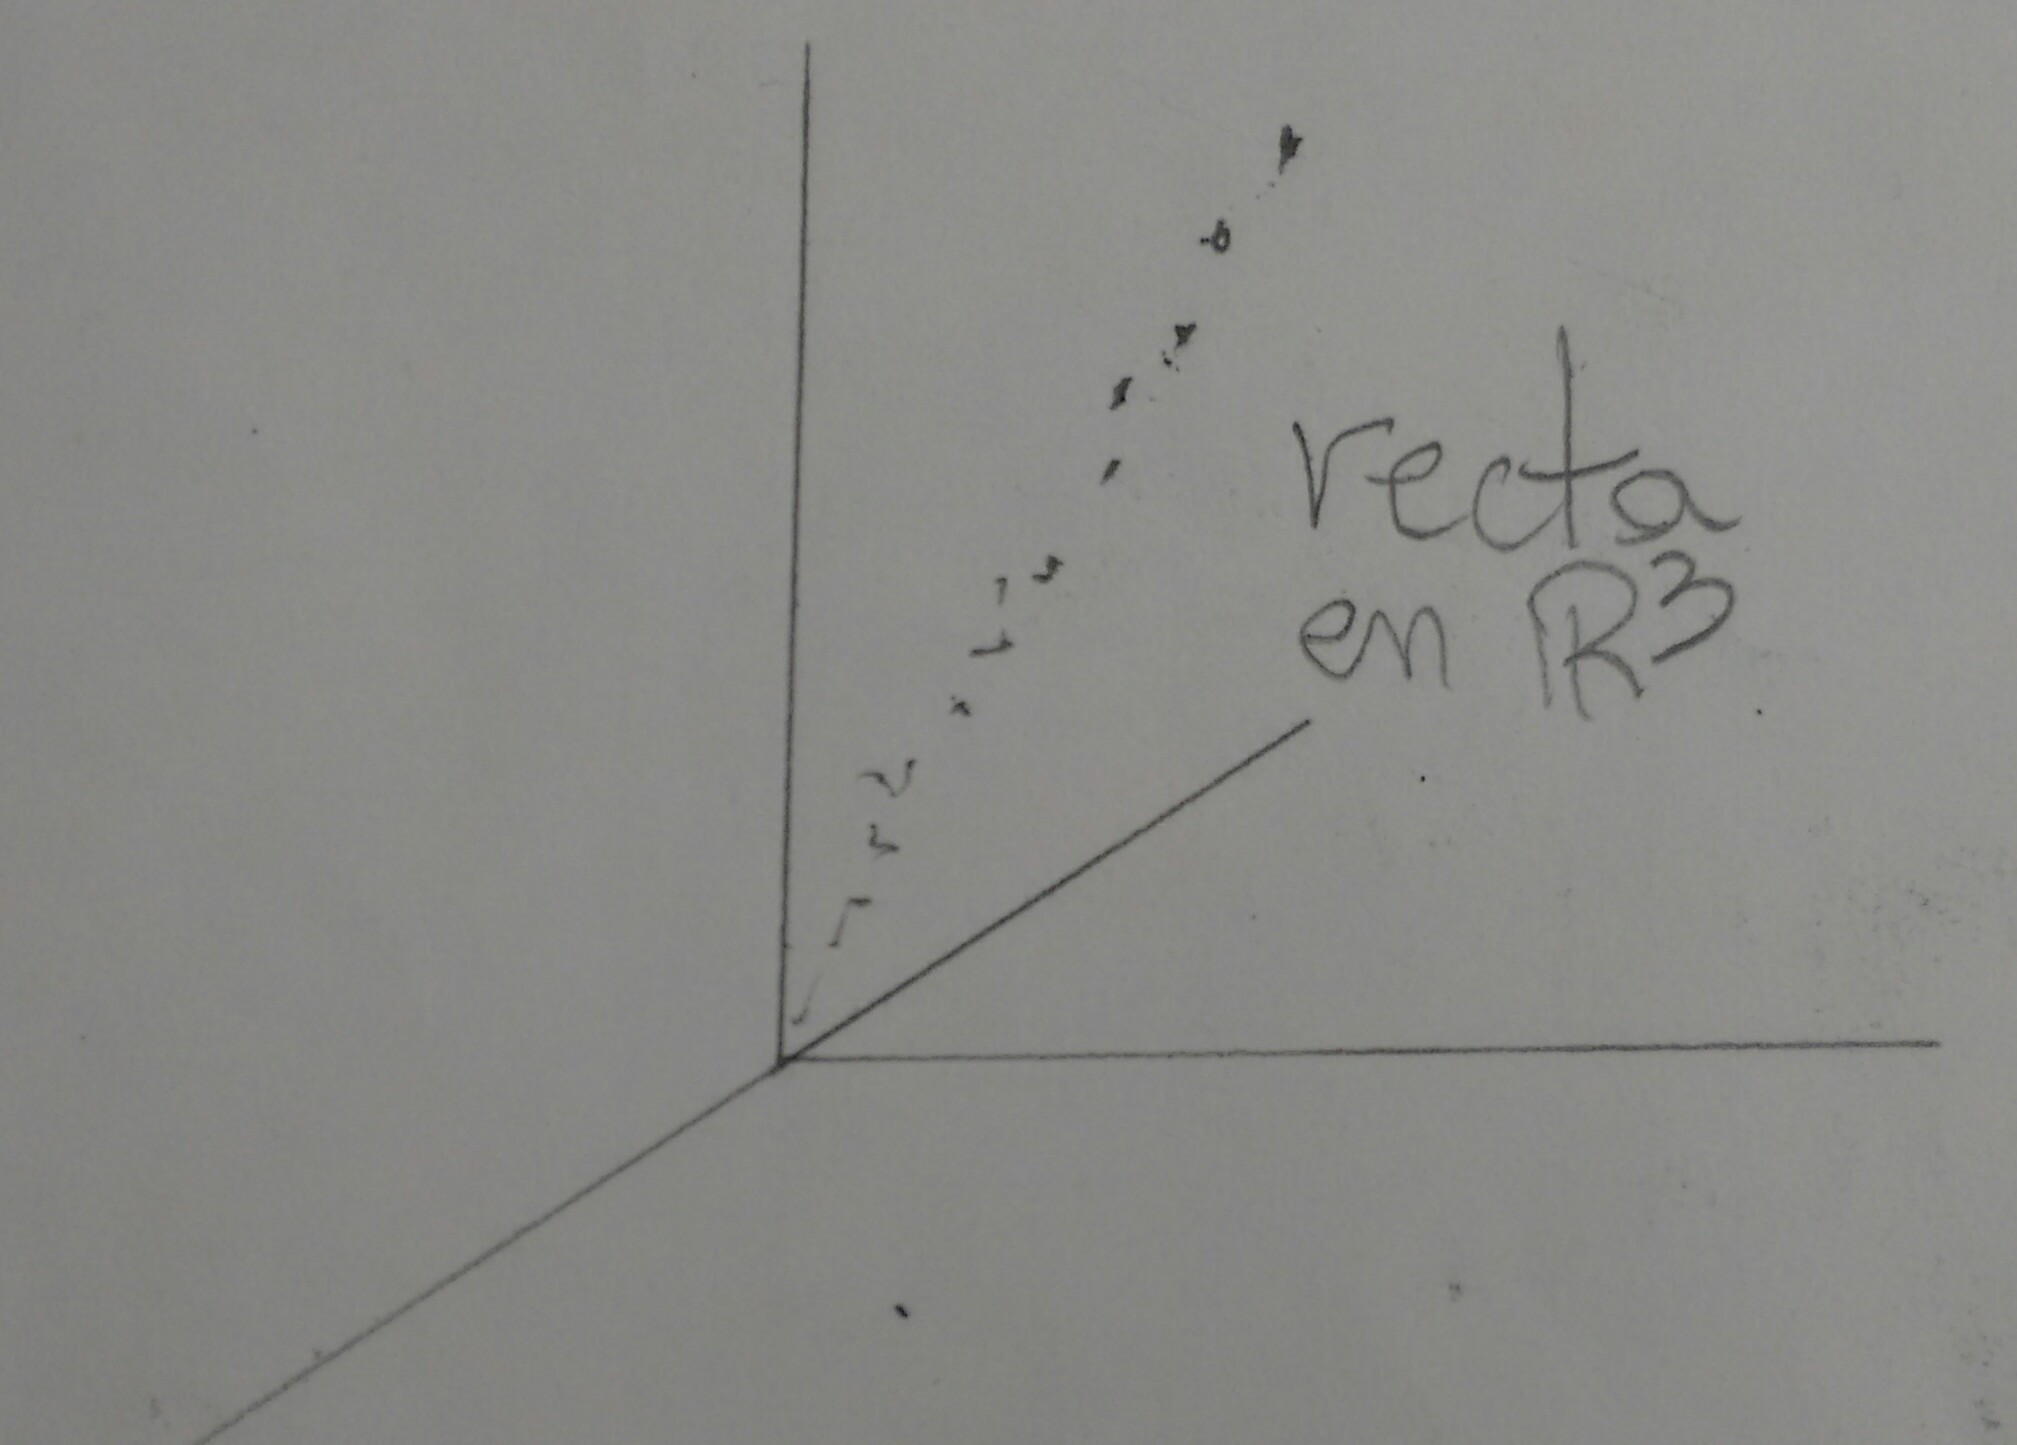 recta
en R³